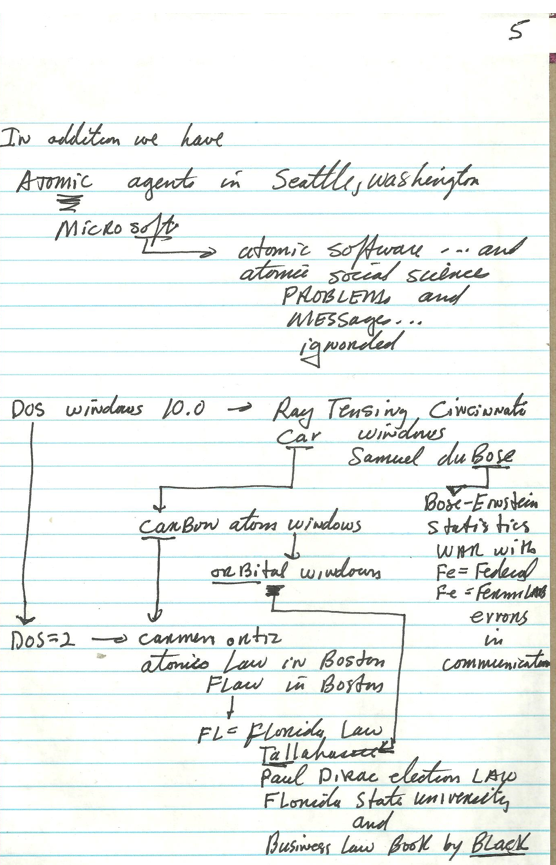 5
In addition we have
Atomic agents in Seattle, Washington
Microsoft
atomic software ... and
atomic social science
PROBLEMS and
MESSages...
ignorded
DOS windows 10.0 → Ray Tensing Cincinnati
Car windows
Samuel duBose
Bose-Einstein
Statistics
WAR with
Fe = Federal
Fe = Fermilab
errors
in
communication
CARBON atom windows
orBital windows
DOS=2 → carmen ortiz
atomic Law in Boston
FLaw in Boston
FL = Florida Law
Tallahassee
Paul Dirac election LAW
Florida State University
and
Business Law Book by BLACK